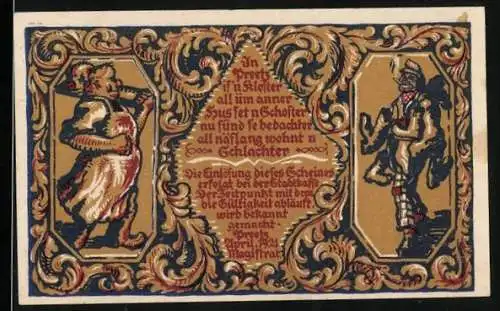 In
Preetz
is'n Kloster
all üm anner
Hus set n Schoster
nu sünd se bedachter
all nöslang wohnt n
Schlachter
Die Einlösung dieses Scheines
erfolgt bei der Stadtkasse
Der Zeitpunkt mit dem
die Gültigkeit abläuft,
wird bekannt
gemacht.
Preetz
April, 1921
Magistrat